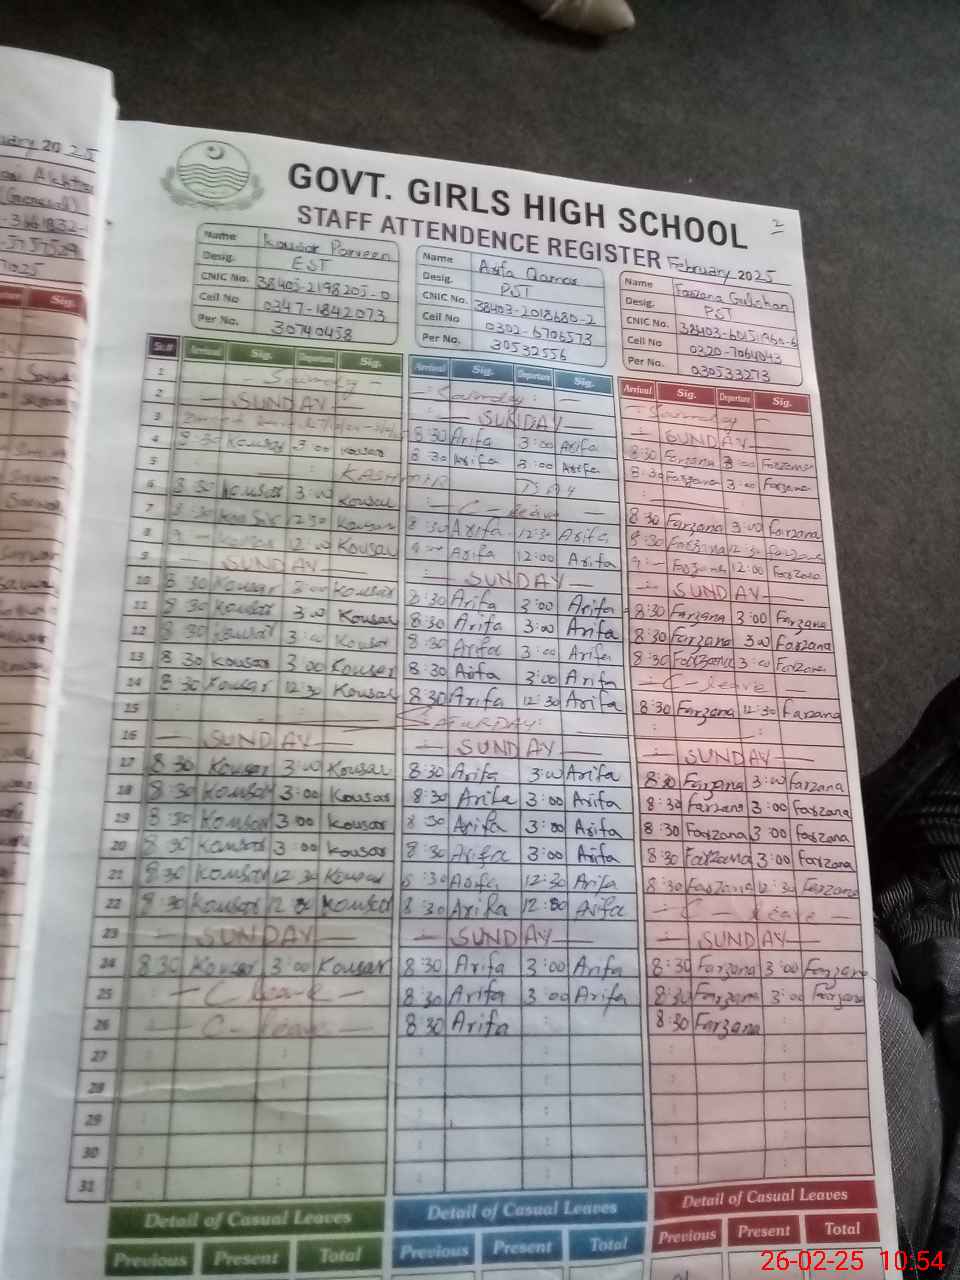 GOVT. GIRLS HIGH SCHOOL
2
STAFF ATTENDENCE REGISTER February 2025
Name Kousar Parveen
Desig. EST
CNIC No. 38403-2198205-0
Cell No 0347-1842073
Per No. 30740458
Name Arifa Qamar
Desig. PST
CNIC No. 38403-2018680-2
Cell No 0302-6706573
Per No. 30532556
Name Farzana Gulshan
Desig. PST
CNIC No.
Cell No 0320-7064043
Per No. 030533273
Sr.# Arrival Sig. Departure Sig. Arrival Sig. Departure Sig. Arrival Sig. Departure Sig.
1 Saturday Saturday Saturday
2 SUNDAY SUNDAY SUNDAY
3 8:30 Arifa 3:00 Arifa 8:30 Farzana 3:00 Farzana
4 8:30 Kousar 3:00 Kousar 8:30 Arifa 3:00 Arifa 8:30 Farzana 3:00 Farzana
5 KASHMIR DAY
6 8:30 Kousar 3:00 Kousar C-leave 8:30 Farzana 3:00 Farzana
7 8:30 Kousar 12:30 Kousar 8:30 Arifa 12:30 Arifa 8:30 Farzana 12:30 Farzana
8 9 Kousar 12:00 Kousar 9 Arifa 12:00 Arifa 9 Farzana 12:00 Farzana
9 SUNDAY SUNDAY SUNDAY
10 8:30 Kousar 3:00 Kousar 8:30 Arifa 3:00 Arifa 8:30 Farzana 3:00 Farzana
11 8:30 Kousar 3:00 Kousar 8:30 Arifa 3:00 Arifa 8:30 Farzana 3:00 Farzana
12 8:30 Kousar 3:00 Kousar 8:30 Arifa 3:00 Arifa 8:30 Farzana 3:00 Farzana
13 8:30 Kousar 3:00 Kousar 8:30 Arifa 3:00 Arifa C-leave
14 8:30 Kousar 12:30 Kousar 8:30 Arifa 12:30 Arifa 8:30 Farzana 12:30 Farzana
15 SATURDAY
16 SUNDAY SUNDAY SUNDAY
17 8:30 Kousar 3:00 Kousar 8:30 Arifa 3:00 Arifa 8:30 Farzana 3:00 Farzana
18 8:30 Kousar 3:00 Kousar 8:30 Arifa 3:00 Arifa 8:30 Farzana 3:00 Farzana
19 8:30 Kousar 3:00 Kousar 8:30 Arifa 3:00 Arifa 8:30 Farzana 3:00 Farzana
20 8:30 Kousar 3:00 Kousar 8:30 Arifa 3:00 Arifa 8:30 Farzana 3:00 Farzana
21 8:30 Kousar 12:30 Kousar 8:30 Arifa 12:30 Arifa 8:30 Farzana 12:30 Farzana
22 8:30 Kousar 12:30 Kousar 8:30 Arifa 12:30 Arifa C-leave
23 SUNDAY SUNDAY SUNDAY
24 8:30 Kousar 3:00 Kousar 8:30 Arifa 3:00 Arifa 8:30 Farzana 3:00 Farzana
25 C-leave 8:30 Arifa 3:00 Arifa 8:30 Farzana 3:00 Farzana
26 C-leave 8:30 Arifa 8:30 Farzana
27
28
29
30
31
Detail of Casual Leaves Detail of Casual Leaves Detail of Casual Leaves
Previous Present Total Previous Present Total Previous Present Total
26-02-25 10:54